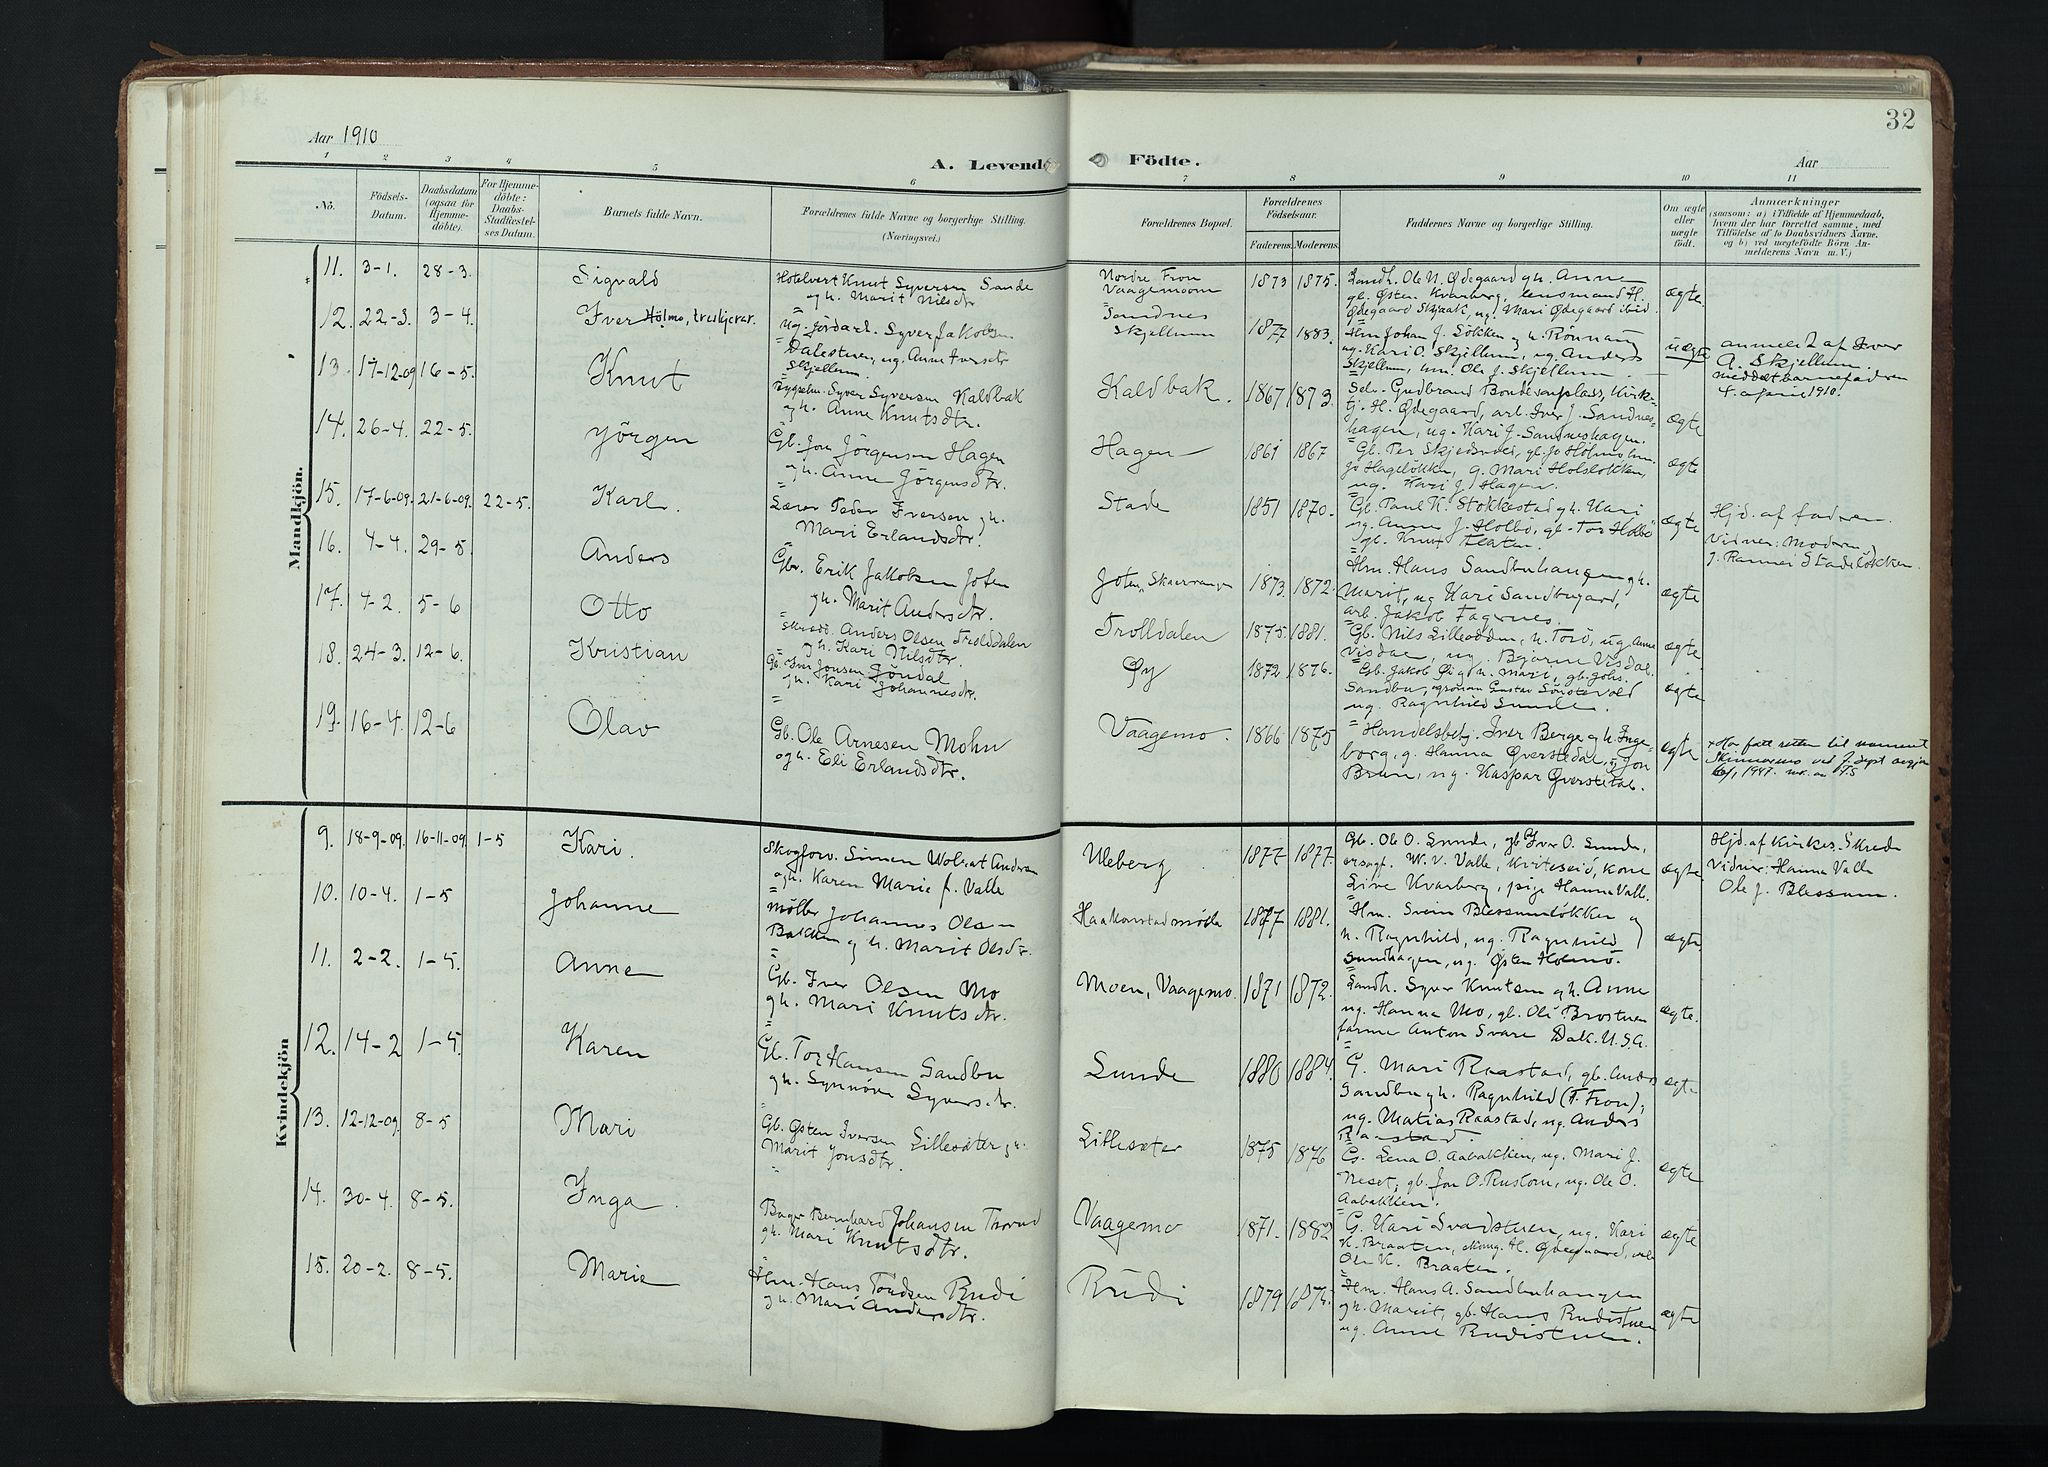 Aar 1910
A. Levende
Födte.
Aar
32
1 2 3 4 5 6 7 8 9 10 11
No.
Födsels-
Datum.
Daabsdatum
(ogsaa for
Hjemme-
döbte).
For Hjemme-
döbte:
Daabs-
Stadfæstel-
ses Datum.
Barnets fulde Navn.
Forældrenes fulde Navne og borgerlige Stilling.
(Næringsvei.)
Forældrenes Bopæl.
Forældrenes
Födselsaar.
Faderens. Moderens.
Faddernes Navne og borgerlige Stilling.
Om ægte
eller
uægte
födt.
Anmærkninger
(saasom: a) i Tilfælde af Hjemmedaab,
hvem der har forrettet samme, med
Tilföielse af to Daabsvidners Navne,
og b) ved uægtefödte Börn An-
melderens Navn m. V.)
Mandkjön.
11. 3-1. 28-3. Sigvald
Hotelvert Knut Syversen Sande
og h. Marit Nilsdtr
Nordre Fron
Vaagemoem
1873 1875.
Landh. Ole N. Ødegaard g h. Anne
gb. Østen Kvarberg, lensmand H.
Ødegaard Skjaak, ug. Mari Ødegaard ibid.
ægte.
12. 22-3. 3-4. Iver Holmo, treskjærer.
ug. Syver Jakobsen
Dalestuen, ug. Anne Iversdtr
Skjellum.
Sandnes
Skjellum
1877 1883.
Hm Johan J. Løkken g h. Rønnaug
ug. Kari O. Skjellum, ug. Anders
Skjellum, hm. Ole J. Skjellum.
uægte
anmeldt af Iver
A. Skjellum.
4. april 1910.
13. 17-12-09 16-5. Knut
Bygselm. Syver Syversen Kaldbak
og h. Anne Knutsdtr.
Kaldbak.
1867 1873.
Selv. Gudbrand Bondesenplass, Kirk-
tj. H. Ødegaard, arb. Iver J. Sandnes-
hagen, ug. Kari J. Sandneshagen.
ægte
14. 26-4. 22-5. Jörgen
Gb. Jon Jörgensen Hagen
og h. Anne Jörgensdtr.
Hagen
1861 1867
Jo Hageløkken, g. Mari Holsløkken,
ug. Kari J. Hagen.
ægte
15. 17-6-09. 21-6-09. 22-5. Karl.
Lærer Peder Iversen g h.
Mari Erlandsdtr.
Stade
1851 1870.
Gb. Paul K. Stokkestad g h. Kari
ug. Anne J. Holbö, gb. Tor Holbö
gb. Knut
ægte
Hjd. af faderen.
Vidner: Moderen,
j. Rannei Stadeløkken.
16. 4-4. 29-5. Anders
Gbr. Erik Jakobsen Joten
g h. Marit Andersdtr.
Joten,
1873. 1872.
Hm. Hans Sandbuhaugen g h.
Marit, ug Kari Sandbugard,
arb. Jakob Fagernes.
ægte
17. 4-2. 5-6 Otto
Skrædd. Anders Olsen Trolddalen
g h. Kari Nilsdtr.
Trolldalen
1875. 1881.
Gb. Nils Lilleødden, h. Torö, ug. Anne
Visdal, ug. Bjarne Visdal.
ægte.
18. 24-3. 12-6. Kristian
Gb. Iver Jonsen Jöndal
g h. Kari Johannesdtr.
Øy
1872 1876.
Gb. Jakob Øi g h. Mari, gb. Johs.
Sandbu, agronom Gustav Sönstevold
ug. Ragnhild Sunde.
ægte
19. 16-4. 12-6 Olav
Gb. Ole Arnesen Mohn
og h. Eli Erlandsdtr.
Vaagemo.
1866 1875
Handelsbetj. Iver Berge og h. Inge-
borg, g. Hanna Øverstedal, ug. Jon
Brun, ug. Kaspar Øverstedal.
ægte
+ Har fått retten til navnet
ved J. dept
1947.
Kvindekjön
9. 18-9-09. 16-11-09. 1-5 Kari.
Skogforv. Simen Wolcat Andersen
og h. Karen Marie f. Valle
Uleberg
1877- 1877.
Gb. Ole O. Sunde, gb Iver O. Sunde,
W. V. Valle, Kviteseid, kone
Live Kvarberg, pige Hanna Valle.
ægte.
Hjd. af Kirkes. Skrede
Vidner: Hanna Valle
Ole J. Blessum.
10. 10-4. 1-5 Johanne
Möller Johannes Olsen
Bakken g h. Marit Olsdtr.
Haakonstadmölle
1877 1881.
Hm. Svein Blessumløkken g
h. Ragnhild, ug. Ragnhild
Sundhagen, ug. Østen Holmö.
ægte.
11. 2-2. 1-5. Anne
Gb. Iver Olsen Mo
g h. Mari Knutsdtr.
Moen, Vaagemo.
1871 1872.
Landh. Syver Knutsen g h. Anne
ug. Hanna Mo, gb. Ole Brostuen
farmer Anton Svare Dak. U.S.A.
ægte.
12. 14-2 1-5. Karen
Gb. Tor Hansen Sandbu
g h. Synnöve Syversdtr.
Sunde
1880 1884.
G. Mari Raastad, gb. Anders
Sandbu g h. Ragnhild (F. Fron),
ug. Matias Raastad, ug. Anders
Raastad.
ægte
13. 12-12-09. 8-5 Mari
Gb. Østen Iversen Lillesæter g h.
Marit Jonsdtr.
Lillesæter
1875 1876
Gs. Lena O. Aabakken, ug. Mari J.
Neset, gb. Jon O. Rustom, ug. Ole O.
Aabakken.
ægte
14. 30-4. 8-5. Inga
Bager Bernhard Johansen
g h. Mari Knutsdtr.
Vaagemo
1871. 1882
G. Kari Svadstuen, ug. Kari
K. Braaten, H. Ødegaard,
Ole K. Braaten.
ægte
15. 20-2. 8-5. Marie
Hm. Hans Tordsen Rudi
g h. Mari Andersdtr.
Rudi
1879 1875.
Hm. Hans A. Sandbuhaugen
g h. Marit, gb. Hans Rudistuen
ug. Anne Rudistuen.
ægte